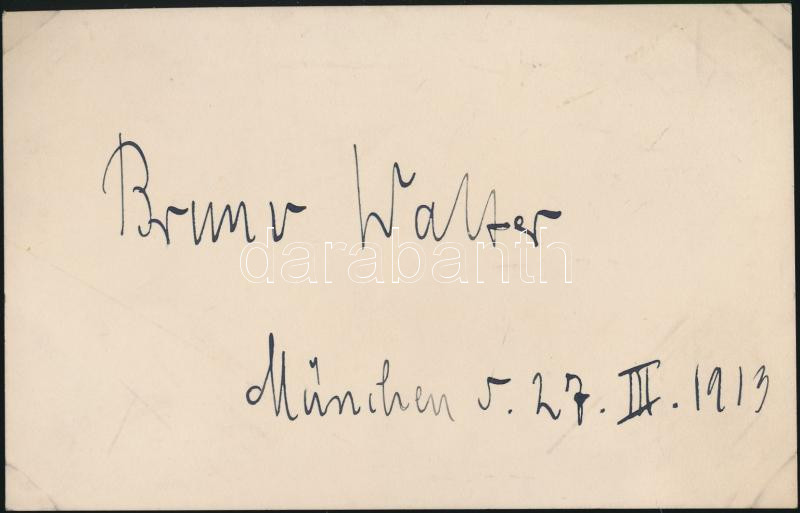 Bruno Walter
darabanth
München d. 27. III. 1913